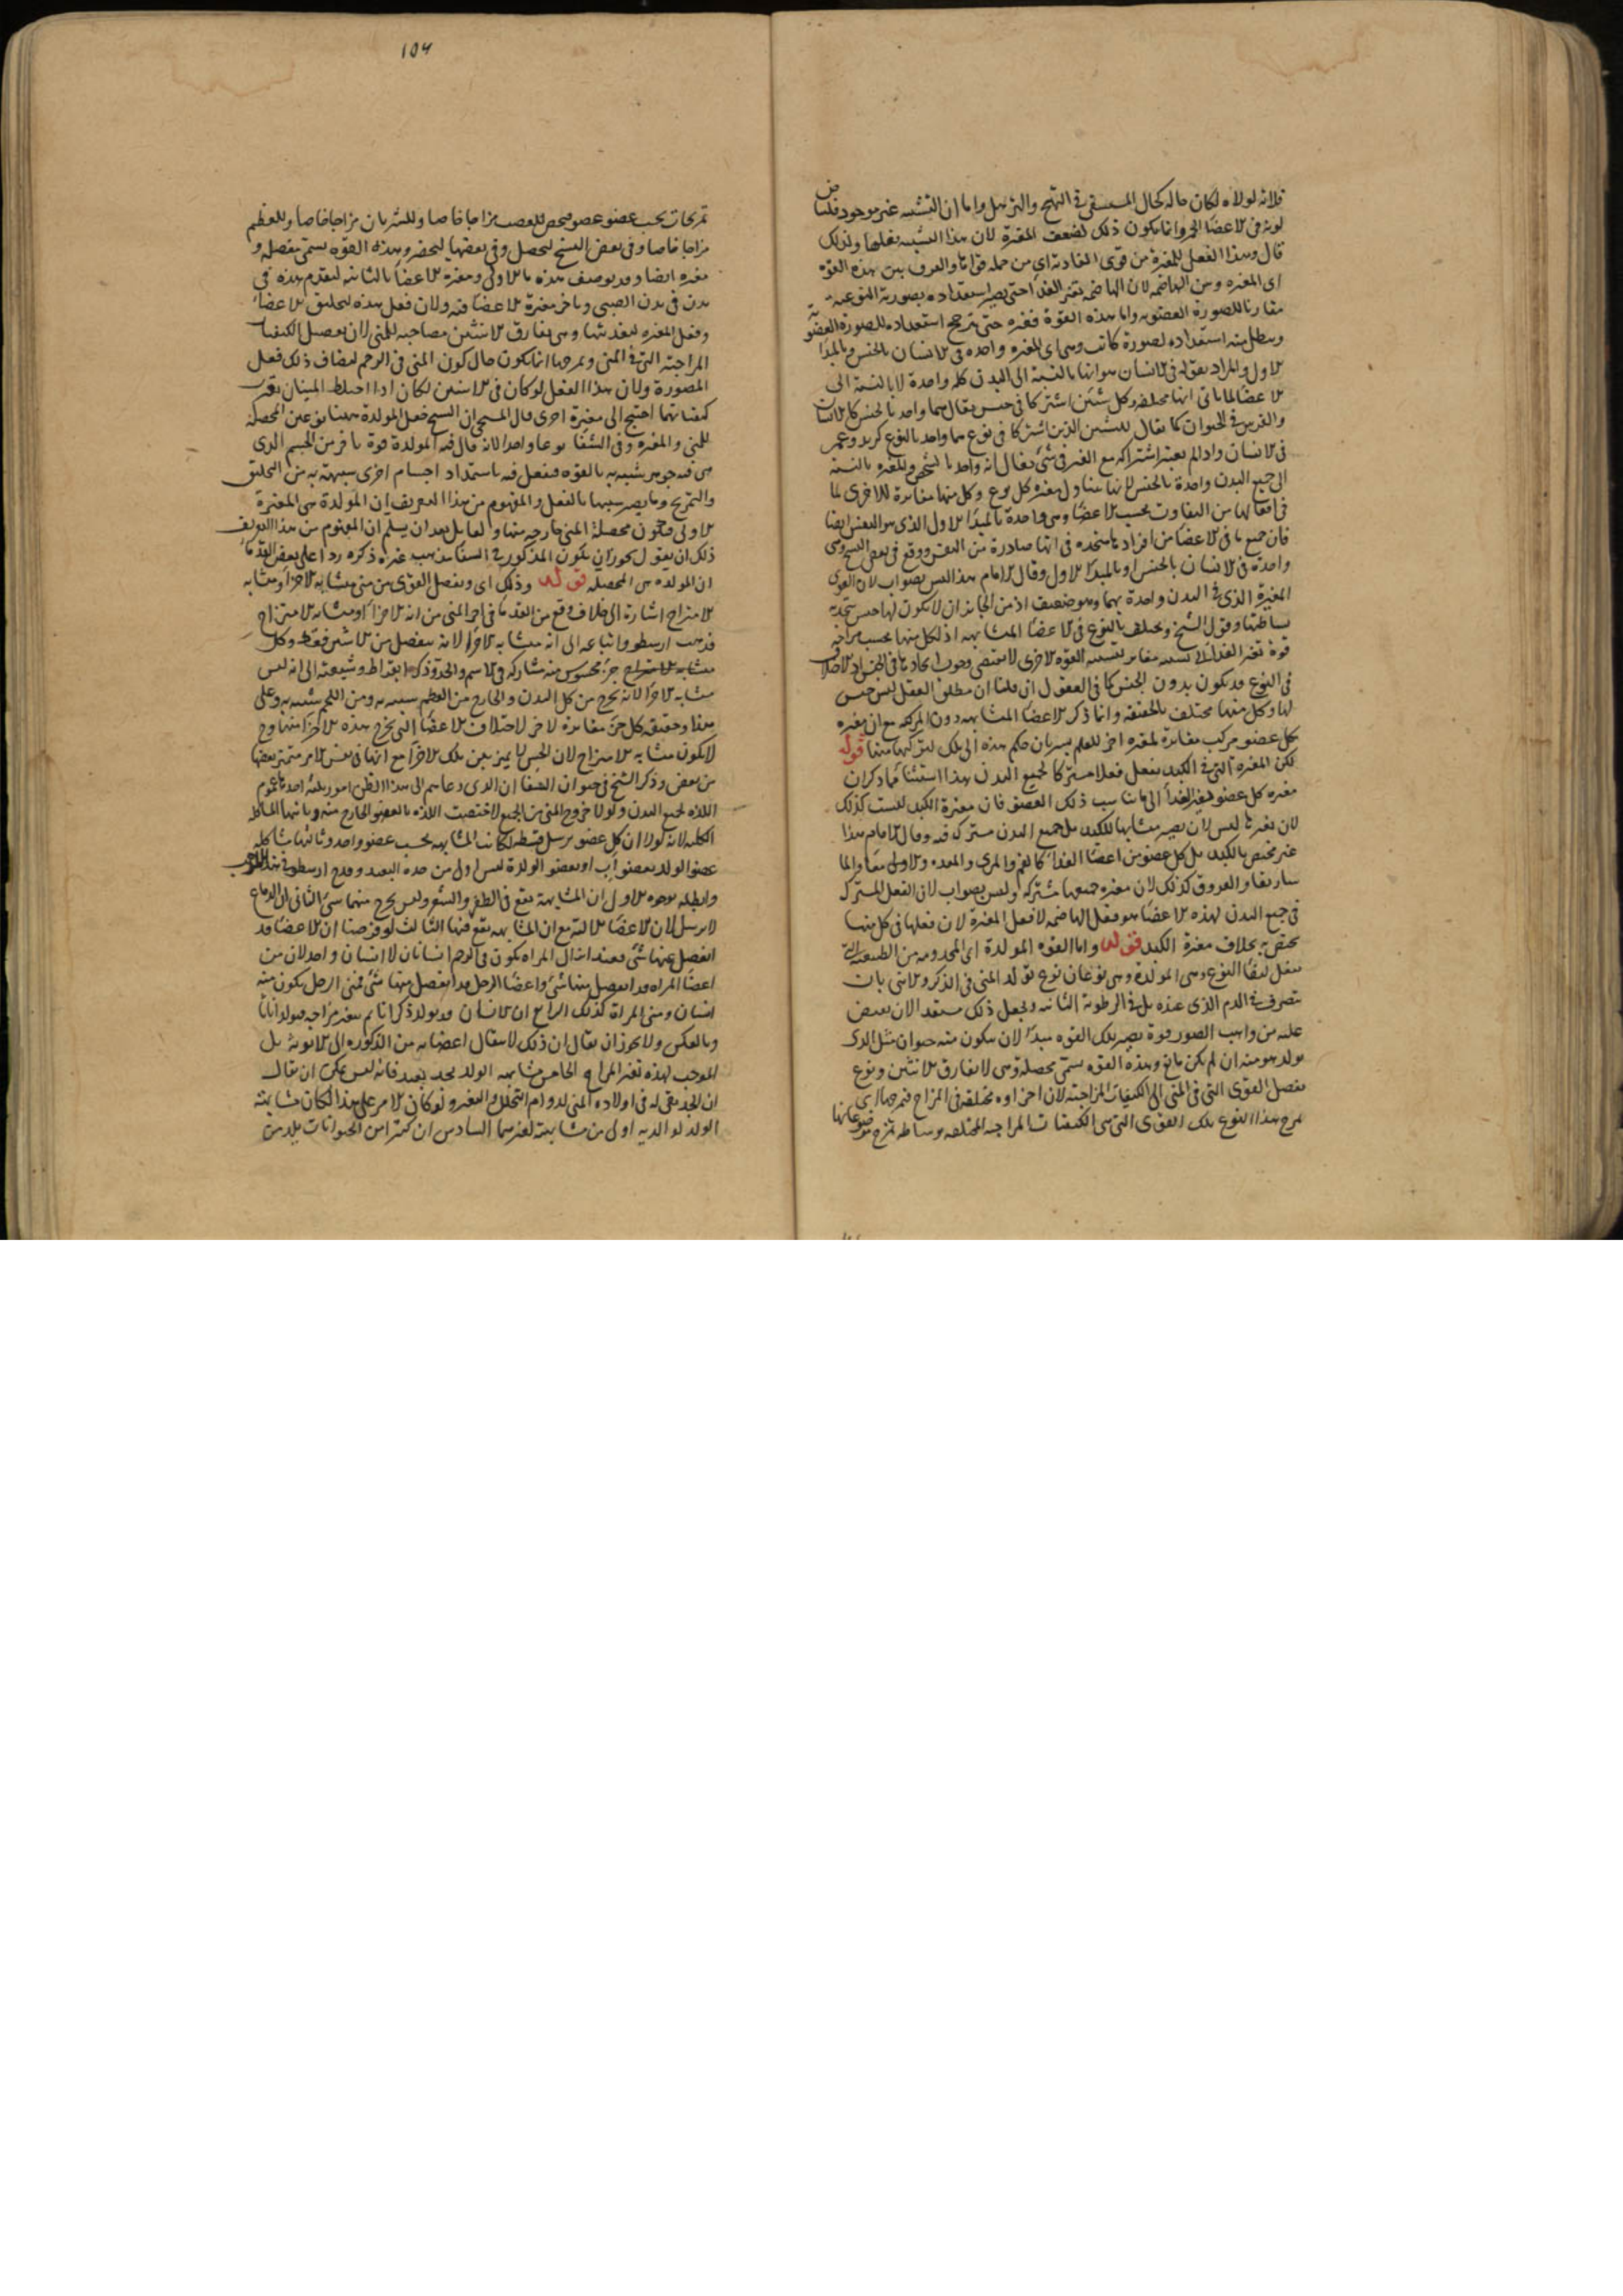 فلانه لولاه لكان حاله كحال المستسقى فى التهيج والترهل واما ان التشبيه غير موجود فلسا
لونه فى الاعضا الحمر وانما يكون ذلك لضعف المغيرة لان هذا التشبيه بفعلها ولذلك
قال وهذا الفعل للمغيرة من قوى الغاذية اى من جملة قواها والفرق بين هذه القوة
اى المغيره وبين الهاضمه لان الهاضمه تغير الغذا حتى يصير استعداده بصورته النوعيه
مقاربا للصورة العضويه واما هذه القوة فتغيره حتى يترجح استعداده للصورة العضويه
ويبطل منه استعداده لصورة كانت وهى اى المغيره واحده فى الانسان بالجنس وبالمبدا
الاول والمراد بقوله فى الانسان هو انها بالنسبة الى البدن كله واحدة لا بالنسبة الى
الاعضا لما ياتى انها مختلفه وكل شيئين اشتركا فى جنس يقال هما واحد بالجنس كالانسان
والفرس فى الحيوان كما يقال للشيئين الذين اشتركا فى نوع هما واحد بالنوع كزيد وعمر
فى الانسان واذا لم يعتبر اشتراكه مع الغير فى شئ يقال انه واحد بالشخص والمغيره بالنسبة
الى جميع البدن واحدة بالجنس لانها يتناول مغيره كل نوع وكل منها مغايرة للاخرى لما
فى افعالها من التفاوت بحسب الاعضا وهى واحدة بالمبدا الاول الذى هو النفس ايضا
فان جميع ما فى الاعضا من افراد ها متحده فى انها صادرة من النفس ووقع فى بعض النسخ وهى
واحدة فى الانسان بالجنس او بالمبدا الاول وقال الامام هذا ليس بصواب لان القوى
المغيرة الذى فى البدن واحدة بهما وهو ضعيف اذ من الجائز ان لا يكون لها جنس
بساطتها وقول الشيخ ويختلف بالنوع فى الاعضا المتشابهه اذ لكل منها بحسب مزاجه
قوة تغير الغذا الى تشبيه مغاير لتشبيه القوه الاخرى لا يقتضى وجوب اتحادها فى الجنس
فى النوع قد يكون بدون الجنس كما فى العقول ان قلنا ان مطلق العقل ليس جنس
لها وكل منها مختلف بالحقيقه وانما ذكر الاعضا المتشابهه دون المركبه مع ان مغيره
كل عضو مركب مغايرة لمغيره اخر للعلم بسريان حكم هذه الى تلك لتركبها منها قوله
لكن المغيره التى فى الكبد يفعل فعلا مشتركا لجميع البدن هذا استثنا مما ذكر ان
مغيره كل عضو يغير الغذا الى ما يناسب ذلك العضو فان مغيرة الكبد ليست كذلك
لان تغيرها ليس لان يصير مشابها للكبد بل جميع البدن مشترك فيه وقال الامام هذا
غير مختص بالكبد بل كل عضو من اعضا الغذا كالفم والمرى والمعده والاول
ساريقا والعروق كذلك لان مغيره جميعها مشتركه وليس بصواب لان الفعل المشترك
فى جميع البدن لهذه الاعضا هو فعل الهاضمه لا فعل المغيرة لان فعلها فى كل منها
يختص به بخلاف مغيرة الكبد قوله واما القوه المولدة اى المخدومه من الطبيعيه التى
يفعل لبقا النوع وهى المولدة وهى نوعان نوع تولد المنى فى الذكر والانثى بان
يتصرف فى الدم الذى عنده بل فى الرطوبة الثانيه ويجعل ذلك مستعدا لان يفيض
عليه من واهب الصور قوة يصير بتلك القوه مبدا لان يتكون منه حيوان مثل الذى
تولد هو منه ان لم يكن مانع وهذه القوه يسمى محصله وهى لا يفارق الانثيين ونوع
يفصل القوى التى فى المنى الى الكيفيات المزاجية لان اجزاوه مختلفه فى المزاج فيمزجها اى
يمزج هذا النوع تلك القوى التى هى الكيفيات المزاجيه المختلفه بوساطه تمزج موضوعاتها
١٥٤
تمزيجات بحسب عضو عضو فيخص للعصب مزاجا خاصا وللشريان مزاجا خاصا وللعظم
مزاجا خاصا وفى بعض النسخ ليحصل وفى بعضها ليحضر وهذه القوه يسمى مفصله و
مغيره ايضا وقد يوصف هذه بالاولى ومغيرة الاعضا بالثانيه لتقدم هذه فى
بدن فى بدن الصبى وتاخر مغيرة الاعضا فيه ولان فعل هذه لتخليق الاعضا
وفعل المغيره لتغذيتها وهى يفارق الانثيين مصاحبه للمنى لان تفصيل الكيفيات
المزاجية التى فى المنى وتمزيجها انما يكون حال كون المنى فى الرحم ليضاف ذلك فعل
المصورة ولان هذا الفعل لو كان فى الانثيين لكان اذا اختلط المنيان تغير
كيفياتهما احتيج الى مغيرة اخرى قال المسيحى ان الشيخ جعل المولدة ههنا نوعين المحصله
للمنى والمغيره وفى الشفا نوعا واحدا لانه قال فيه المولدة قوة تاخذ من الجسم الذى
هى فيه جوهر يشبهه به بالقوه فيفعل فيه باستمداد اجسام اخرى يشبهه به من التخليق
والتمزيج وما يصير شبيها بالفعل والمفهوم من هذا التعريف ان المولدة هى المغيرة
الاولى فيكون محصلة المنى خارجه منها ولقايل بعد ان يسلم ان المفهوم من هذا التعريف
ذلك ان يقول يجوز ان يكون المذكور فى الشفا مذهب غيره ذكره ردا على بعض القدما
ان المولده هى المحصله قوله وذلك اى وتفصيل القوى من منى متشابه الاجزا او متشابه
الامتزاج اشارة الى خلاف وقع من القدما فى اجزا المنى من انه الاجزا او متشابه الامتزاج
فذهب ارسطو واتباعه الى انه متشابه الاجزا لانه ينفصل من الانثيين فقط وكل
متشابه الامتزاج جزء محسوس منه مشاركه فى الاسم والحد وذهب بقراط وشيعته الى انه ليس
متشابه الاجزا لانه يخرج من كل البدن والخارج من العظم يشبه به ومن اللحم يشبه به وعلى
هذا وحقيقه كل جزء مغايرة لاخر لاختلاف الاعضا التى يخرج هذه الاجزا منها وح
لا يكون متشابه الامتزاج لان الحس لا يميز بين تلك الاجزا مع انها فى نفس الامر متميز بعضها
من بعض وذكر الشيخ فى حيوان الشفا ان الذى دعاهم الى هذا الظن امور ثلثه احدها عموم
اللذه لجميع البدن ولولا خروج المنى من الجميع لاختصت اللذه بالعضو الخارج منه وثانيها المشاكله
الكليه لانه لولا ان كل عضو يرسل قسطه لكانت المشابهه بحسب عضو واحد وثالثها مشاكله
عضو الولد بعضو اب او بعضو الوالدة ليس اول من جده البعيد وقدح ارسطو فى هذا المذهب
وابطله بوجوه الاول ان المشابهة يقع فى الظفر والشعر وليس يخرج منهما شئ الثانى ان الدماغ
لا يرسل لان الاعضا الالية مع ان المشابهه يقع فيها الثالث لو فرضنا ان الاعضا قد
انفصل عنها شئ فعند انزال المراه يكون فى الرحم انسانان لا انسان واحد لان من
اعضا المراه قد انفصل منها شئ واعضا الرجل قد انفصل منها شئ فمنى الرجل يكون منه
انسان ومنى المراة كذلك الرابع ان الانسان قد يولد ذكرانا ثم يتغير مزاجه فيولد اناثا
وبالعكس ولا يجوز ان يقال ان ذلك لانتقال اعضائه من الذكوره الى الانوثة بل
الموجب لهذه تغير المزاج الخامس مشابهه الولد بجد بعيد فانه ليس يمكن ان يقال
ان الجد بقى له فى اولاده المنى لدوام التحلل والتغير ولو كان الامر على هذا لكان مشابهته
الولد لوالديه اولى من مشابهته لغيرهما السادس ان كثيرا من الحيوانات يلد من